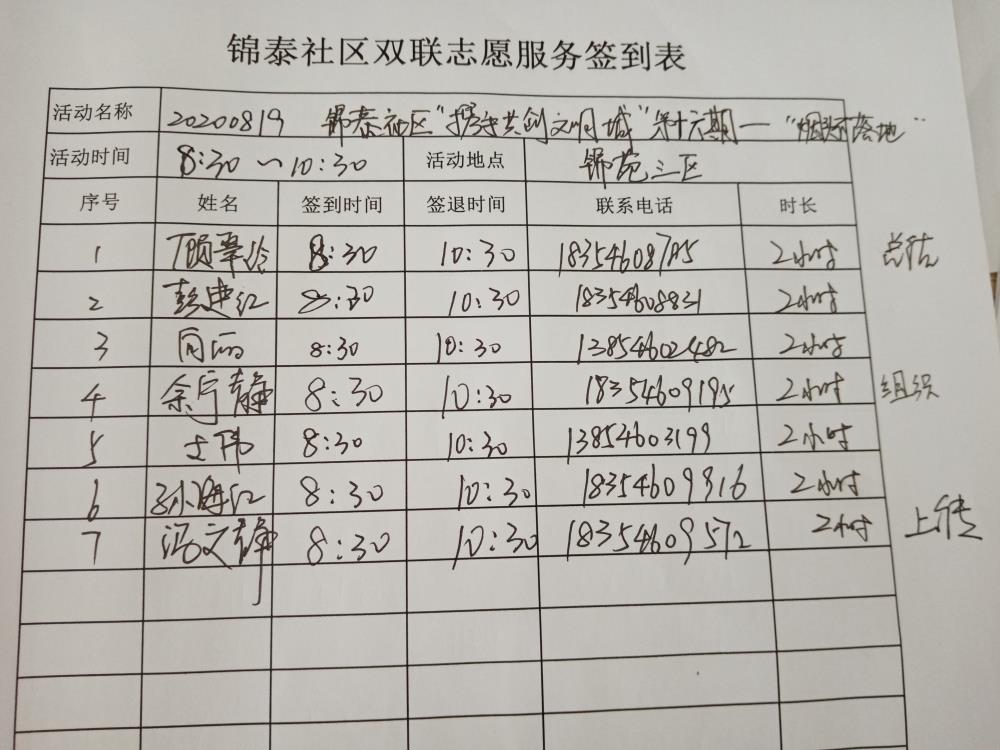 锦泰社区双联志愿服务签到表
活动名称 20200819 锦泰社区"携手共创文明城"第十六期—"烟头不落地"
活动时间 8:30～10:30 活动地点 锦苑三区
序号 姓名 签到时间 签退时间 联系电话 时长
1 顾翠玲 8:30 10:30 2小时 总结
2 彭建红 8:30 10:30 18354608831 2小时
3 8:30 10:30 13854602482 2小时
4 余宁静 8:30 10:30 18354609195 2小时 组织
5 8:30 10:30 13854603199 2小时
6 孙海红 8:30 10:30 18354609816 2小时
7 冯文静 8:30 10:30 18354609572 2小时 上传